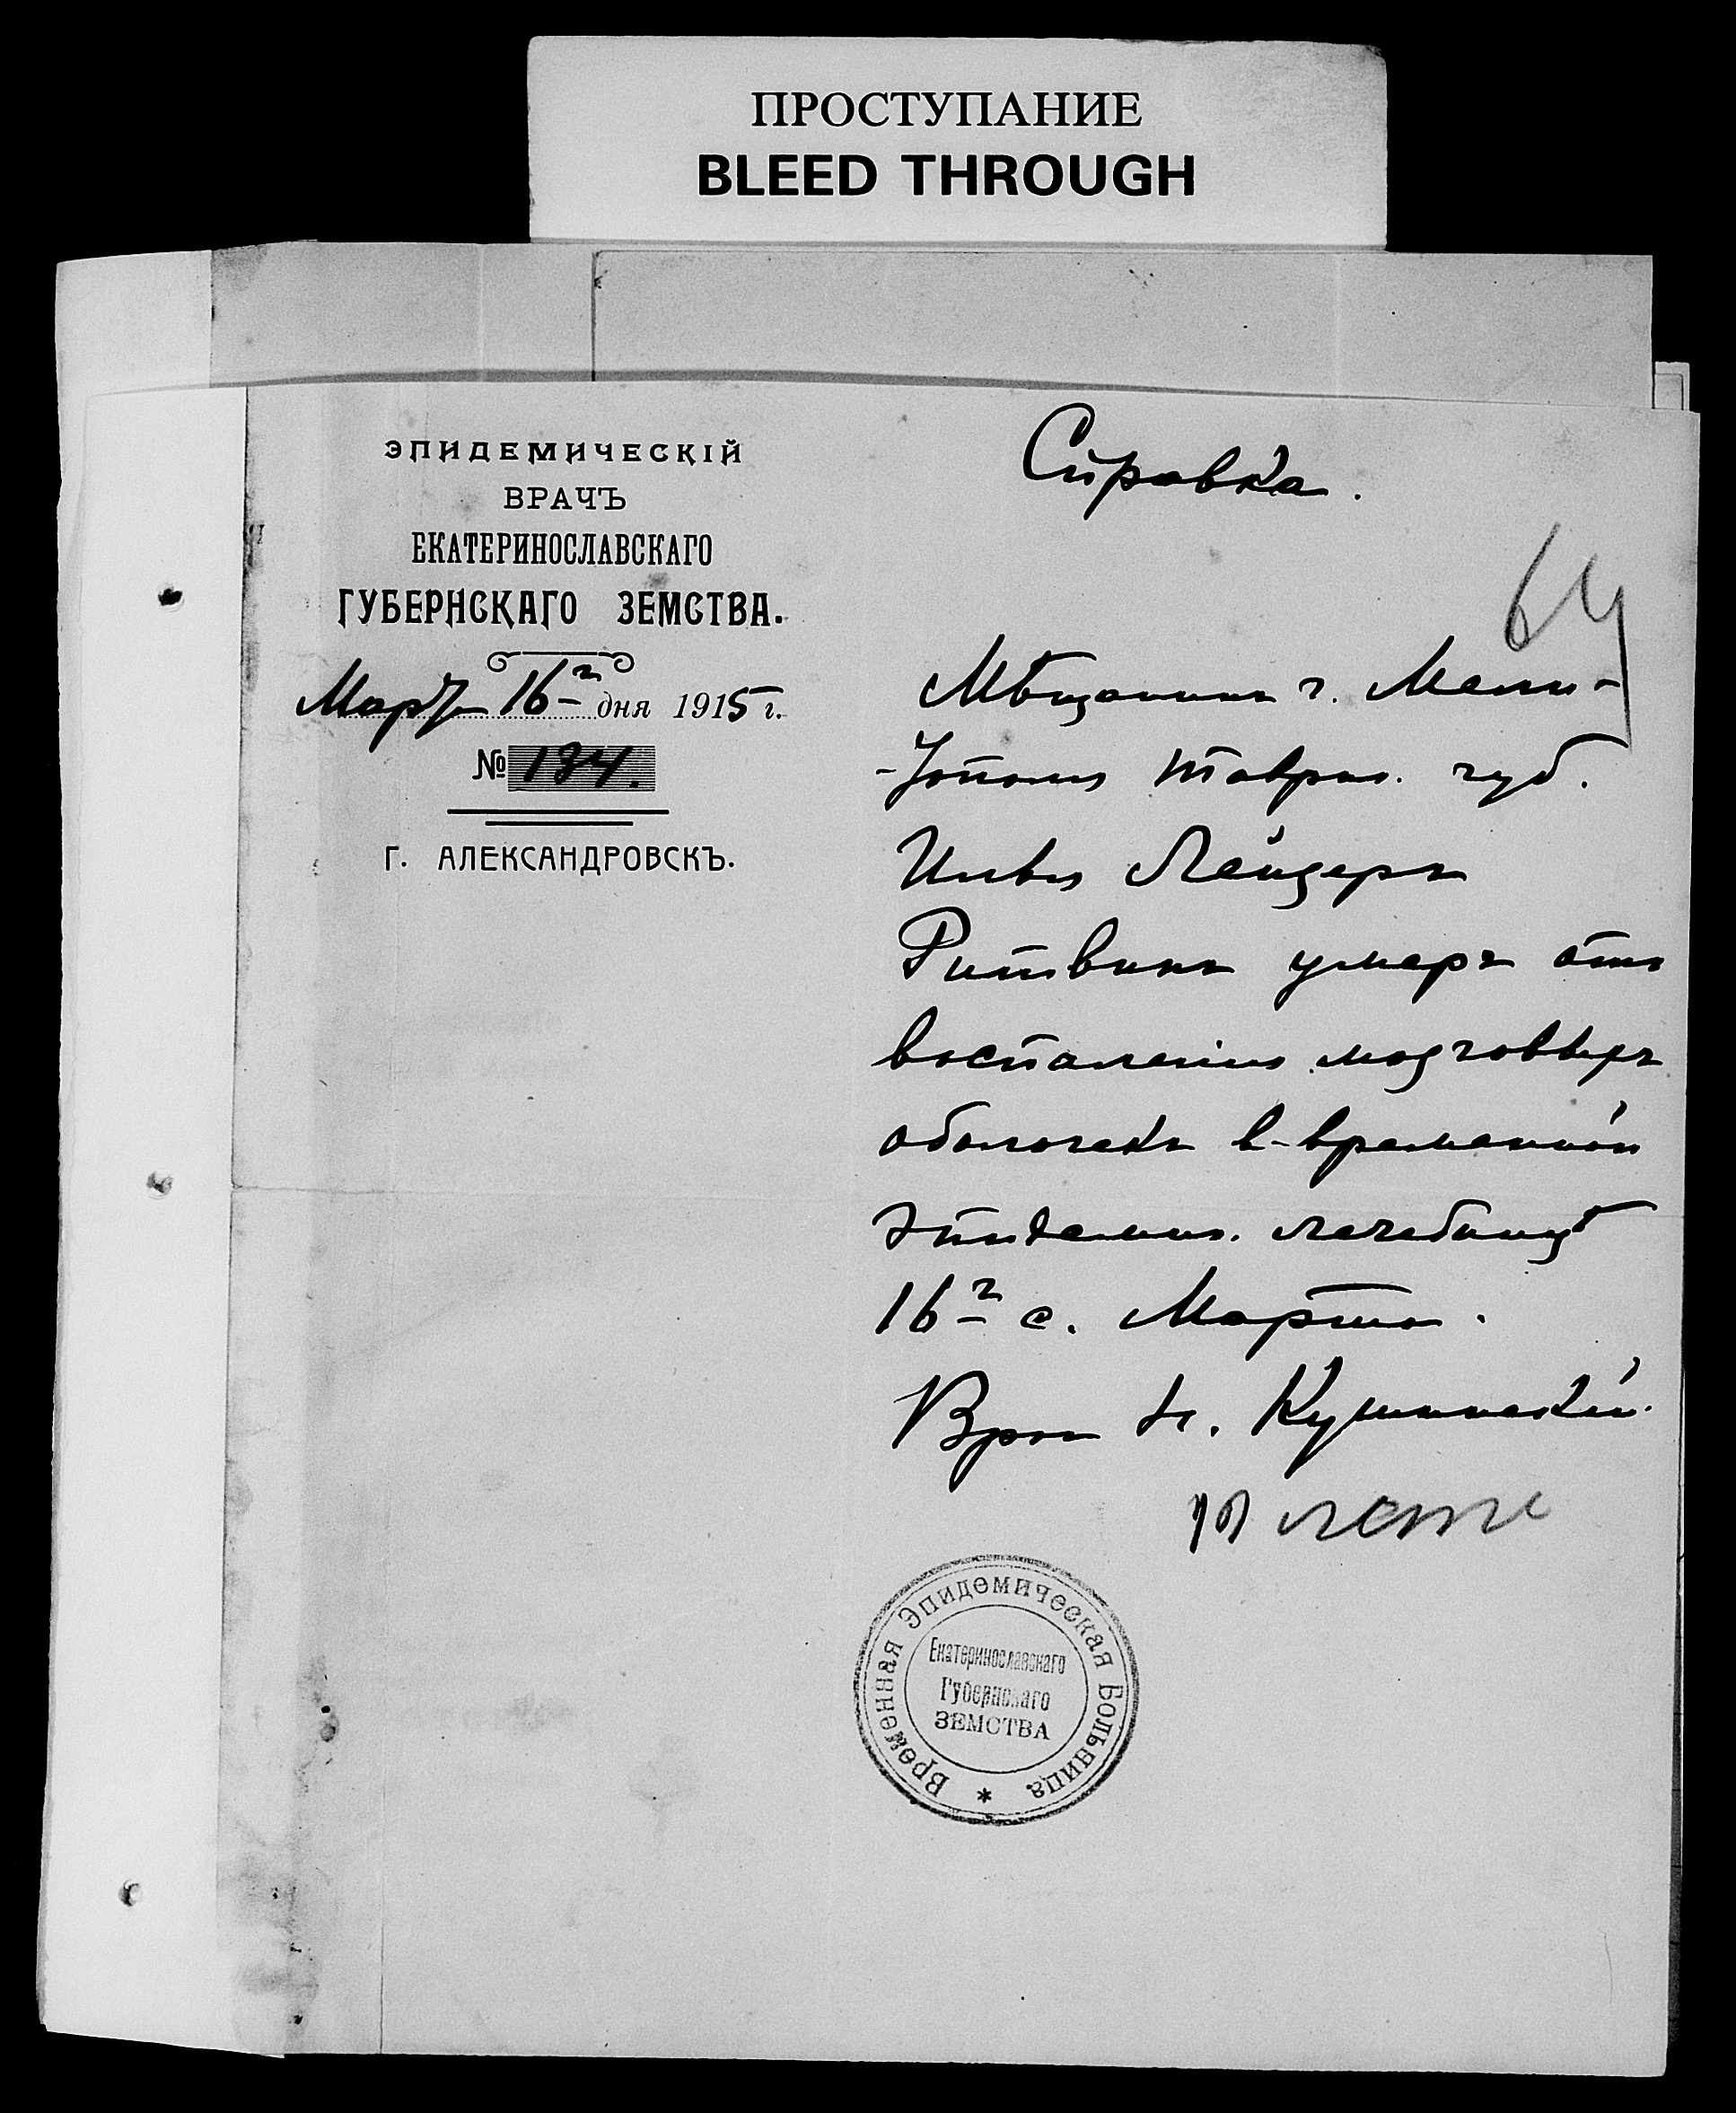 ПРОСТУПАНИЕ
BLEED THROUGH
ЭПИДЕМИЧЕСКІЙ
ВРАЧЪ
ЕКАТЕРИНОСЛАВСКАГО
ГУБЕРНСКАГО ЗЕМСТВА.
Март 16-г дня 1915 г.
№ 134.
Г. АЛЕКСАНДРОВСКЪ.
Справка.
64
Мѣщанинъ г. Мели-
-тополя Таврич. губ.
Лейзеръ
Ритвинъ умеръ отъ
воспаленія мозговыхъ
оболочекъ в временной
Эпидемич. лечебницѣ
16-г с. Марта.
Врач Н.
лета
Временная Эпидемическая Больница
Екатеринославскаго
Губернскаго
ЗЕМСТВА